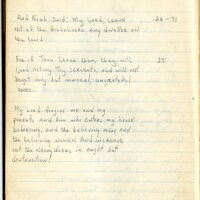 And Noah said: My Lord, Leave 26-71
not of the disbelievers any dweller on
the land
For if Thou Leave them, they will 27
lead astray Thy servants, and will not
beget any but immoral, ungrateful
ones
My Lord forgive me and my
parents and him who enters my house
believing, and the believing men and
the believing women And increase
not the wrongdoers in aught but
destruction!